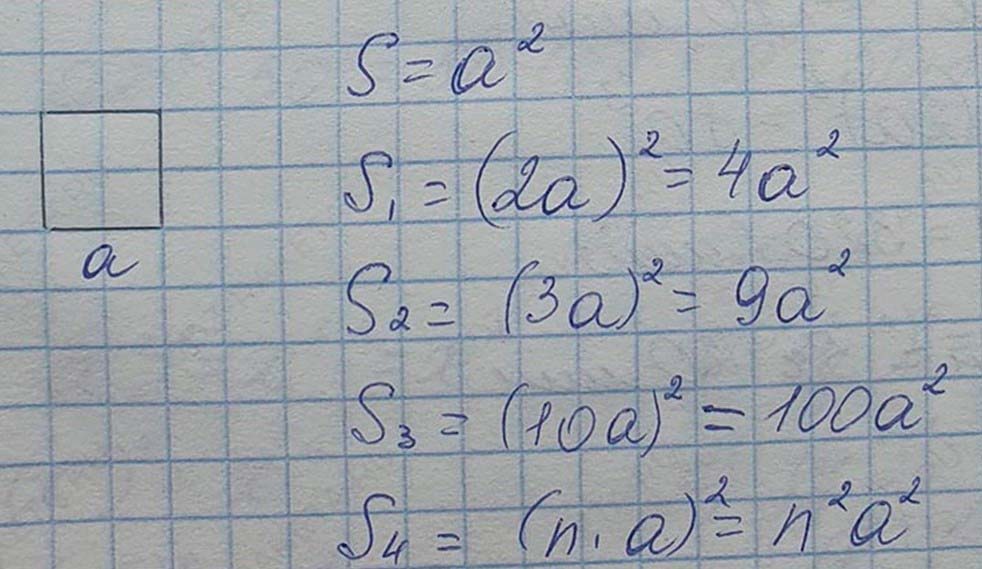 S = a²
S₁ = (2a)² = 4a²
a
S₂ = (3a)² = 9a²
S₃ = (10a)² = 100a²
S₄ = (n · a)² = n²a²